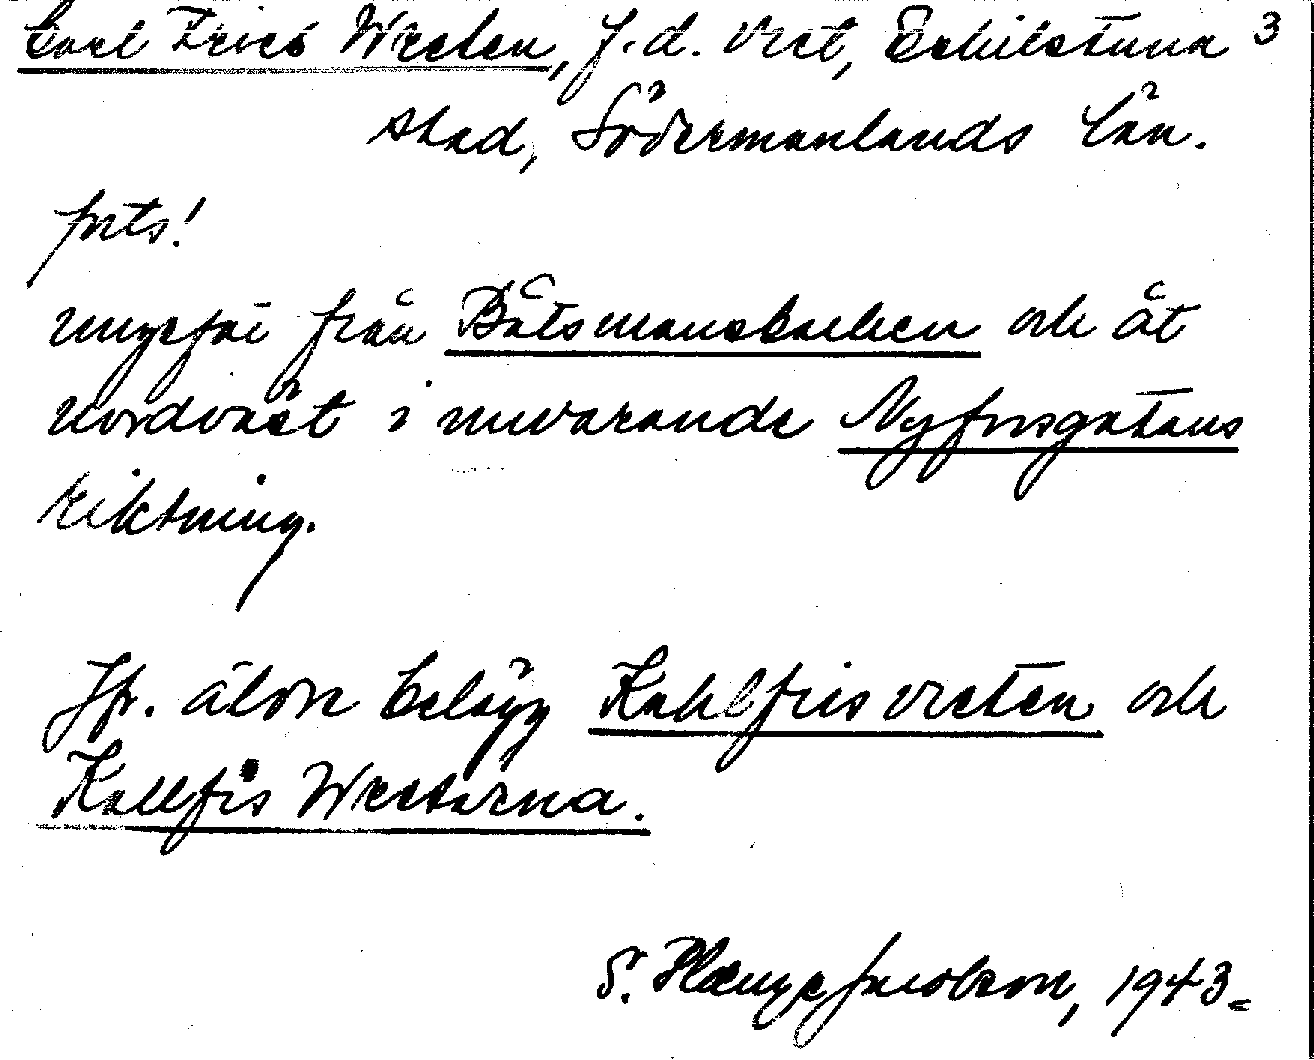 Carl Frics Wreten, f.d. vret, Eskilstuna 3
stad, Södermanlands län.
forts!
ungefär från Båtsmansbacken och åt
nordväst i nuvarande Nyforsgatans
riktning.
Jfr. äldre belägg Kahlfris vreten och
Kallfris Wretarna.
S. 1943.